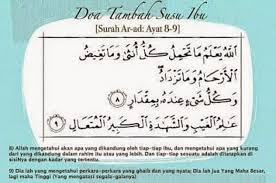 Doa Tambah Susu Ibu
[Surah Ar-ad: Ayat 8-9]
اللَّهُ يَعْلَمُ مَا تَحْمِلُ كُلُّ أُنثَىٰ وَمَا تَغِيضُ
الْأَرْحَامُ وَمَا تَزْدَادُ
وَكُلُّ شَيْءٍ عِندَهُ بِمِقْدَارٍ ٨
عَالِمُ الْغَيْبِ وَالشَّهَادَةِ الْكَبِيرُ الْمُتَعَالِ ٩
8) Allah mengetahui akan apa yang dikandung oleh tiap-tiap ibu, dan mengetahui apa yang kurang
dari yang dikandung dalam rahim itu atau yang lebih. Dan tiap-tiap sesuatu adalah ditetapkan di
sisiNya dengan kadar yang tertentu.
9) Dia lah yang mengetahui perkara-perkara yang ghaib dan yang nyata; Dia lah jua Yang Maha Besar,
lagi maha Tinggi (Yang mengatasi segala-galanya)